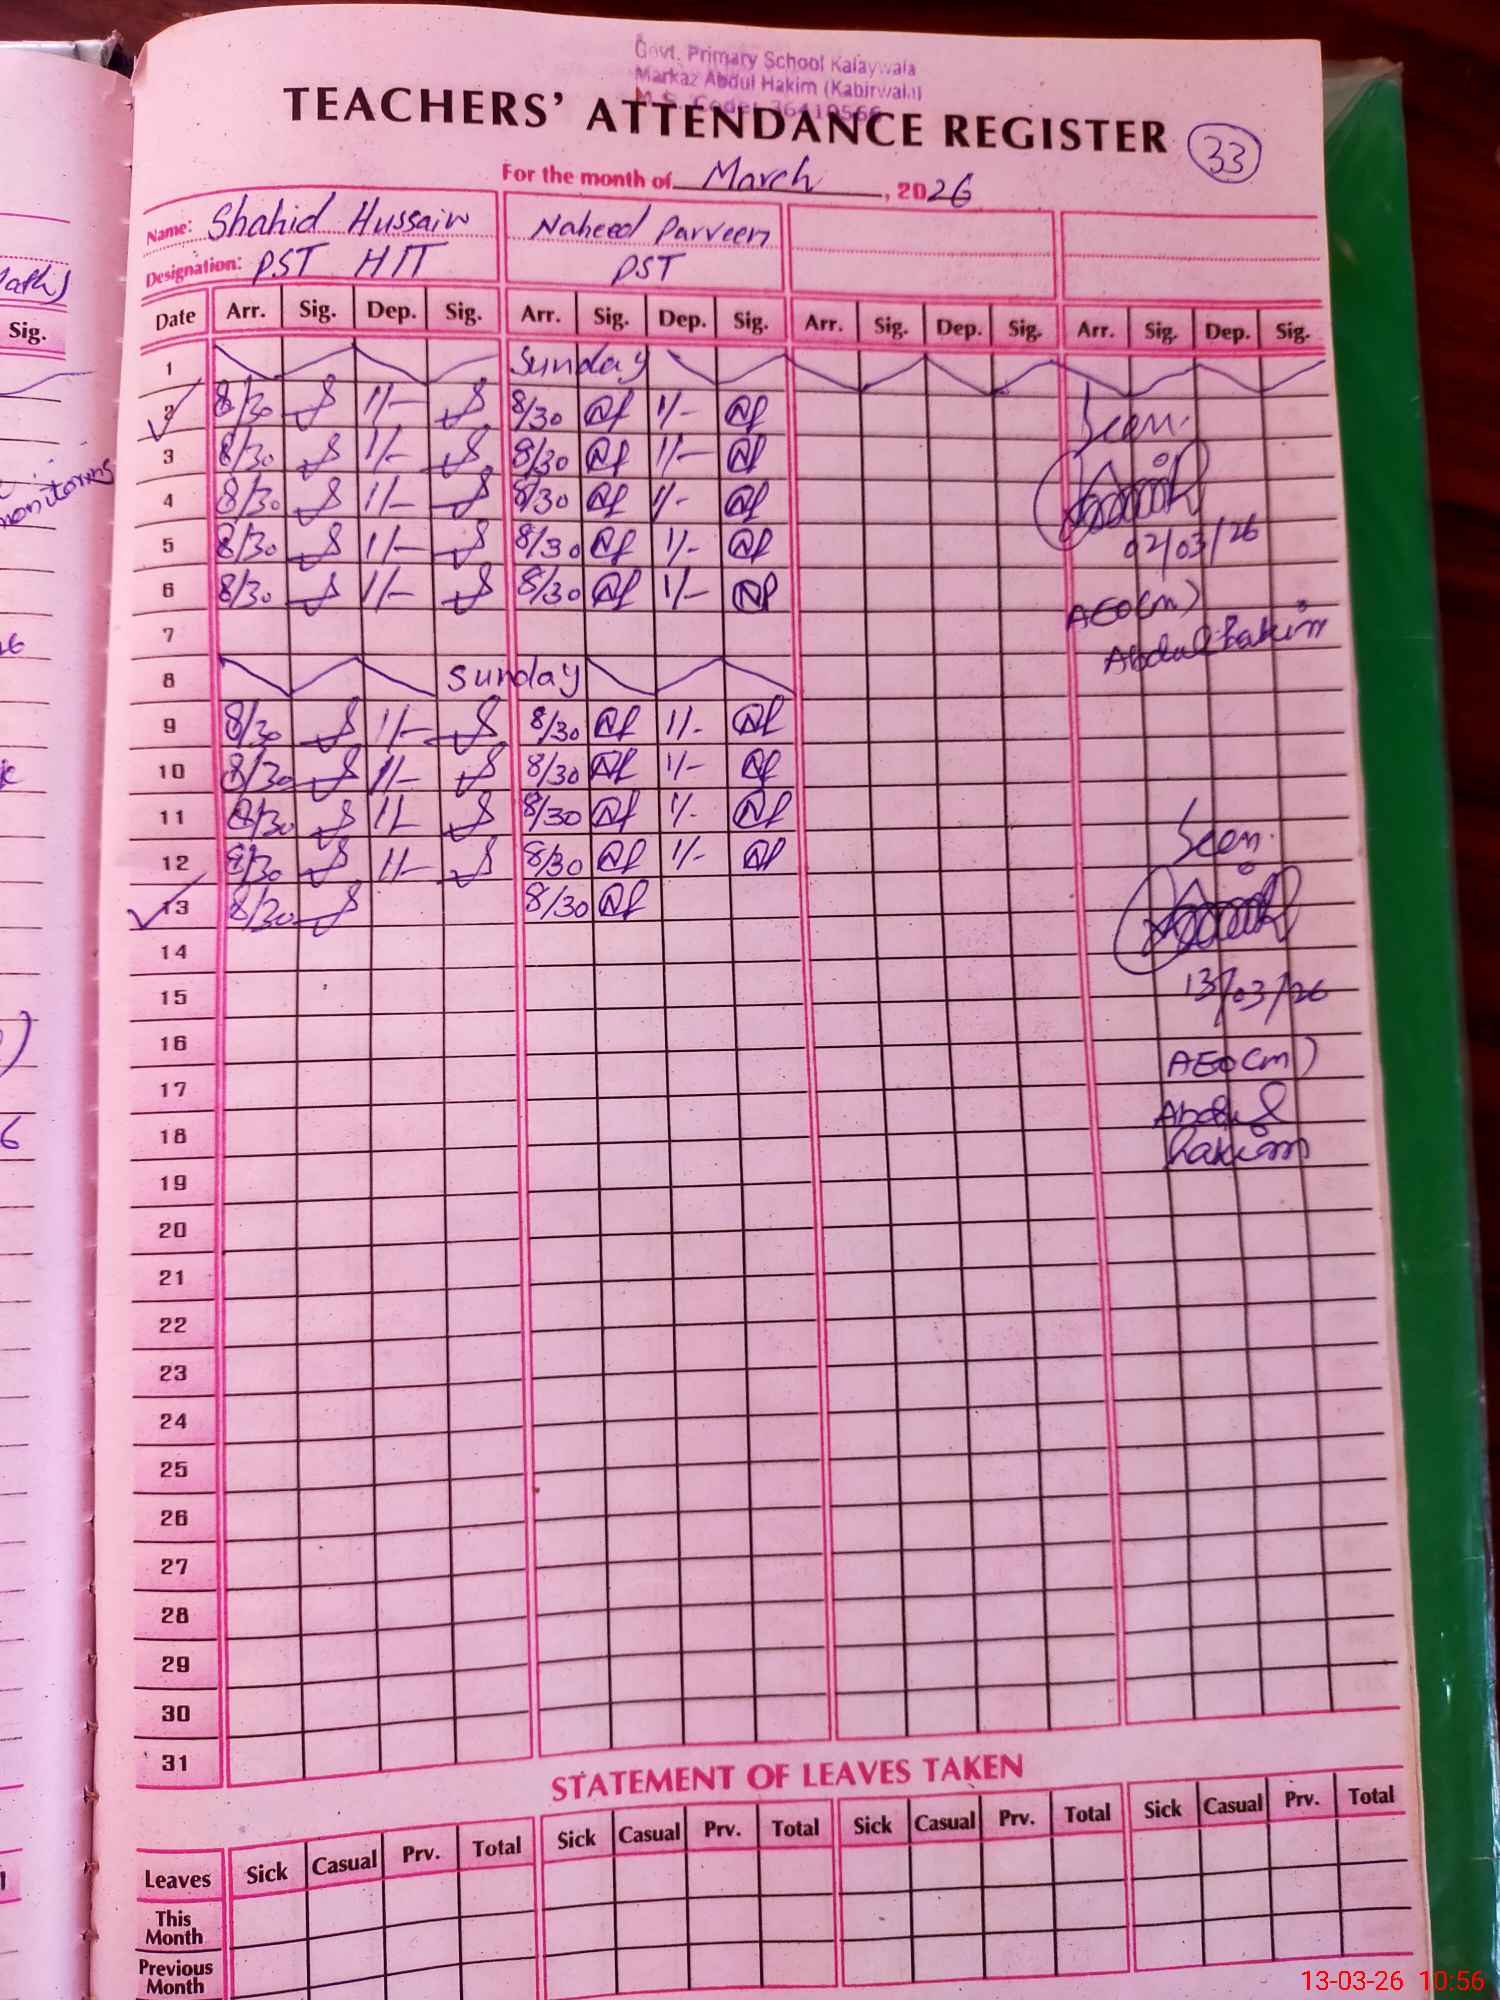 Govt. Primary School Kalaywala
Markaz Abdul Hakim (Kabirwala)
TEACHERS' ATTENDANCE REGISTER 33
For the month of March, 2026
Name: Shahid Hussain Naheed Parveen
Designation: PST HIT PST
Date Arr. Sig. Dep. Sig. Arr. Sig. Dep. Sig. Arr. Sig. Dep. Sig. Arr. Sig. Dep. Sig.
1 Sunday
2 8/30 1/- 8/30 1/- Seen.
3 8/30 1/- 8/30 1/-
4 8/30 1/- 8/30 1/-
5 8/30 1/- 8/30 1/- 02/03/26
6 8/30 1/- 8/30 1/- AEO(m)
7 Abdul Hakim
8 Sunday
9 8/30 1/- 8/30 1/-
10 8/30 1/- 8/30 1/-
11 8/30 1/- 8/30 1/-
12 8/30 1/- 8/30 1/- Seen.
13 8/30 8/30
14
15 13/03/26
16
17 AEO(m)
18 Abdul
Hakim
19
20
21
22
23
24
25
26
27
28
29
30
31
STATEMENT OF LEAVES TAKEN
Leaves Sick Casual Prv. Total Sick Casual Prv. Total Sick Casual Prv. Total Sick Casual Prv. Total
This
Month
Previous
Month
Sig.
monitoring
13-03-26 10:56